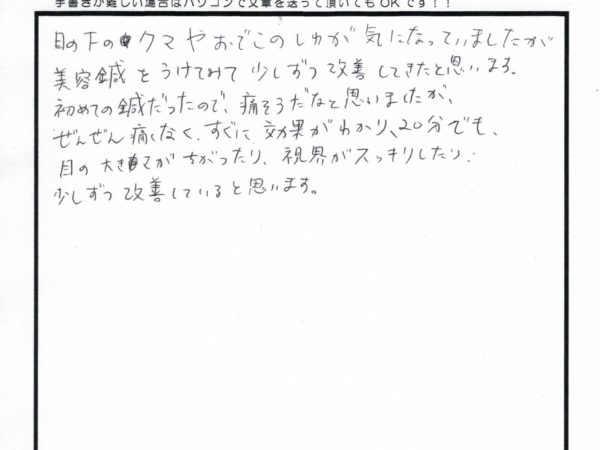 手書きが難しい場合はパソコンで文章を送って頂いてもOKです！！
目の下のクマやおでこのしわが気になっていましたが
美容鍼をうけてみて少しずつ改善してきたと思います。
初めての鍼だったので、痛そうだなと思いましたが、
ぜんぜん痛くなく、すぐに効果がわかり、20分でも、
目の大きさがちがったり、視界がスッキリしたり、
少しずつ改善していると思います。